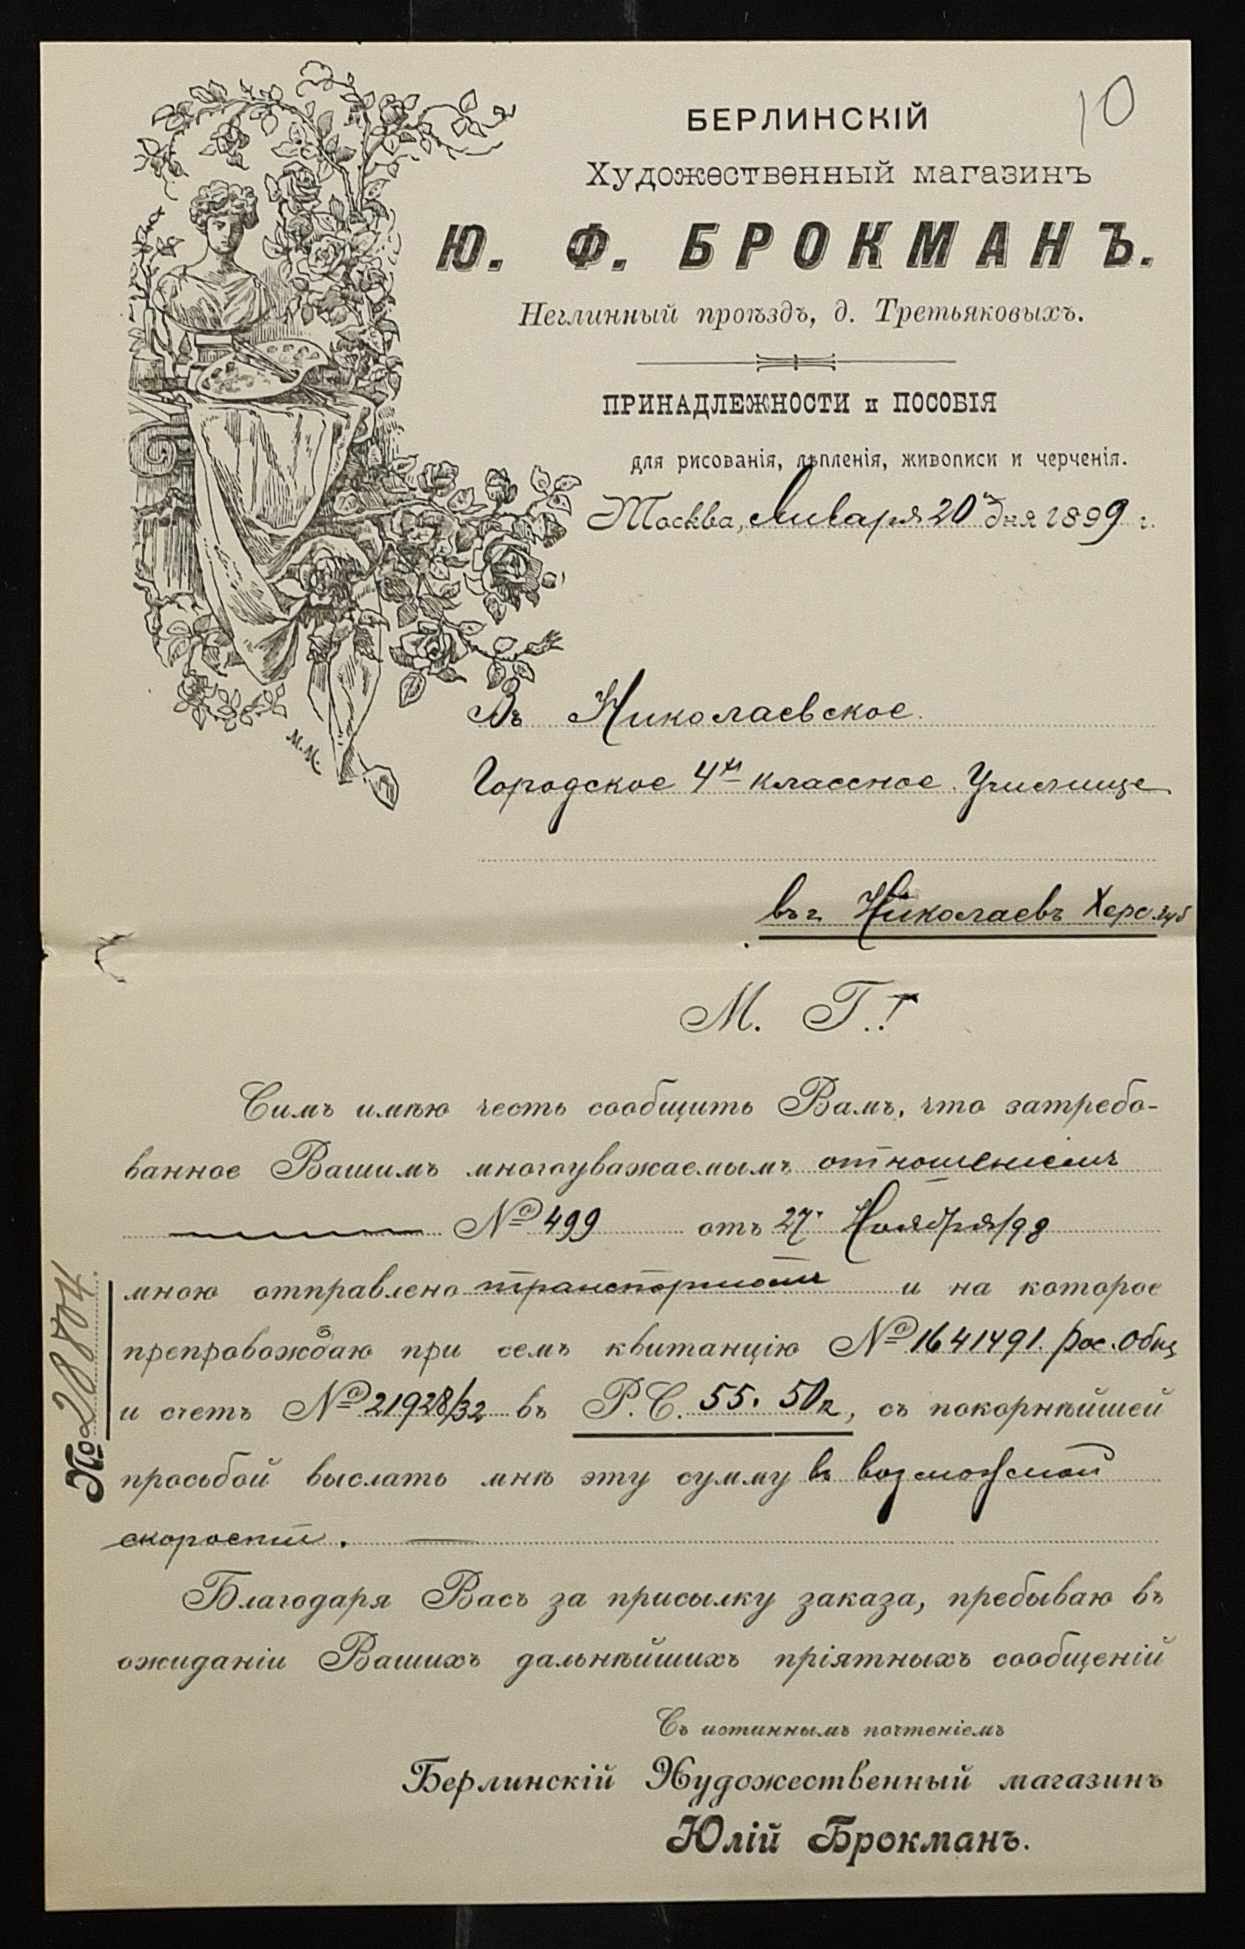 10
БЕРЛИНСКІЙ
Художественный магазинъ
Ю. Ф. БРОКМАНЪ.
Неглинный проѣздъ, д. Третьяковыхъ.
ПРИНАДЛЕЖНОСТИ и ПОСОБІЯ
для рисованія, лѣпленія, живописи и черченія.
Москва, Января 20 дня 1899 г.
М.М.
Въ Николаевское
Городское 4хъ классное Училище
въ г. Николаевъ Херс. губ
М. Г.!
Симъ имѣю честь сообщить Вамъ, что затребо-
ванное Вашимъ многоуважаемымъ отношеніемъ
№ 499 отъ 27 Ноября/98
мною отправлено транспортомъ и на которое
препровождаю при семъ квитанцію № 1641491. рос. Общ
и счетъ № 21928/32 въ Р.С. 55. 50к, съ покорнѣйшей
просьбой выслать мнѣ эту сумму въ возможной
скорости.
Благодаря Васъ за присылку заказа, пребываю въ
ожиданіи Вашихъ дальнѣйшихъ пріятныхъ сообщеній
Съ истиннымъ почтеніемъ
Берлинскій Художественный магазинъ
Юлій Брокманъ.
№ 28804